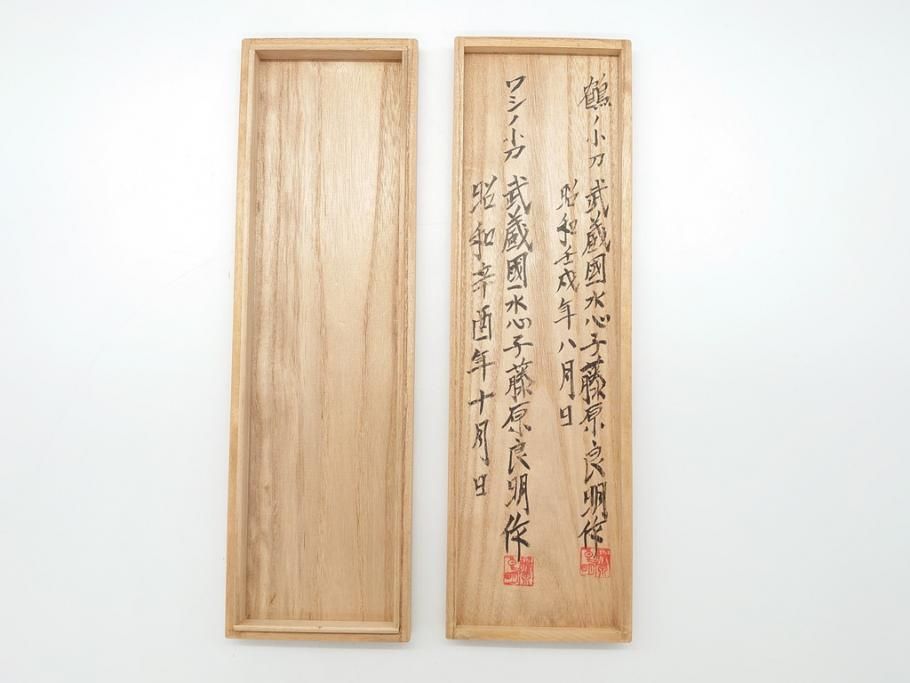 鶴ノ小刀 武蔵國水心子藤原良明作
昭和壬戌年八月日
ワシノ小刀 武蔵國一水心子藤原良明作
昭和辛酉年十月日